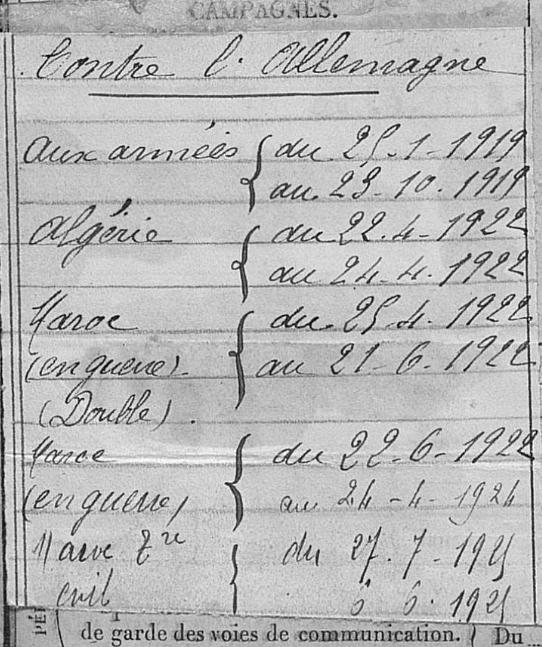 CAMPAGNES.
Contre l'Allemagne
Aux armées { du 25.1-1919
au 23.10.1919
Algérie { du 22.4-1922
au 24.4.1922
Maroc { du 25.4.1922
(en guerre) au 21-6.1922
(Double).
Maroc { du 22.6-1922
(en guerre) au 24-4-1924
Maroc { du 27.7-1925
6 6.1925
de garde des voies de communication. { Du